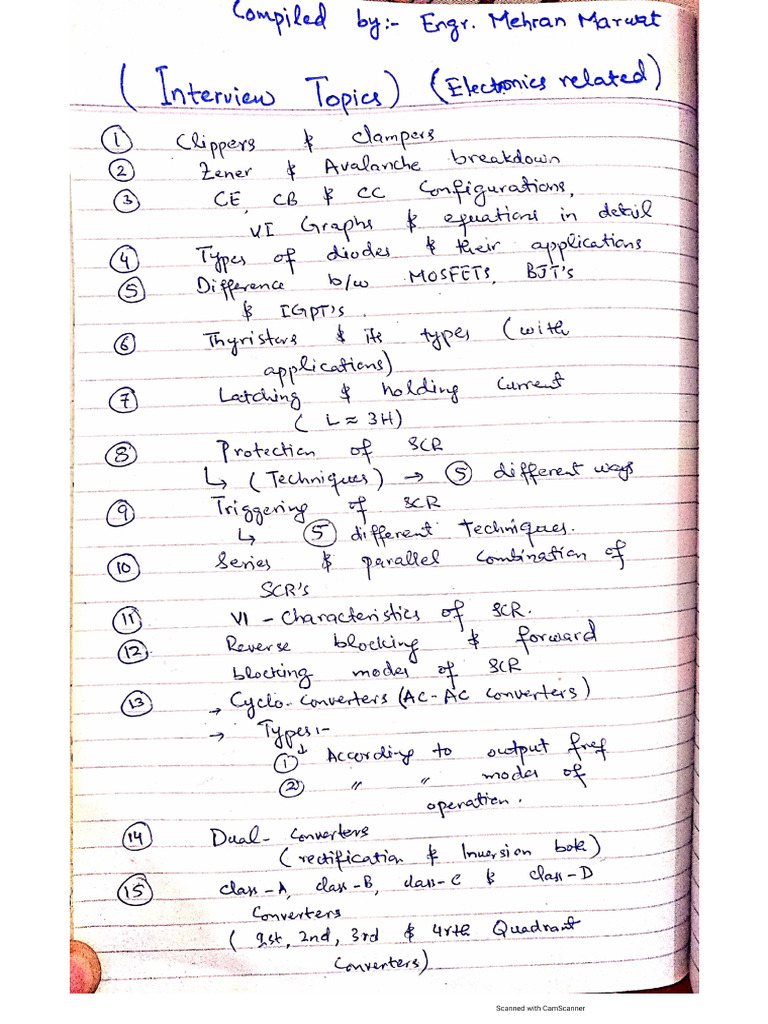 Compiled by:- Engr. Mehran Marwat
( Interview Topics) (Electronics related)
① Clippers & clampers
② Zener & Avalanche breakdown
③ CE, CB & CC Configurations,
VI Graphs & equations in detail
④ Types of diodes & their applications
⑤ Difference b/w MOSFETS, BJT's
& IGPT's.
⑥ Thyristors & its types (with
applications)
⑦ Latching & holding current
( L ≈ 3H)
⑧ Protection of SCR
↳ (Techniques) → ⑤ different ways
⑨ Triggering of SCR
↳ ⑤ different Techniques.
⑩ Series & parallel Combination of
SCR's
⑪ VI - Characteristics of SCR.
⑫ Reverse blocking & forward
blocking modes of SCR
⑬ → Cyclo-Converters (AC-AC Converters)
→ Types:-
① According to output freq
② " " modes of
operation.
⑭ Dual- Converters
(rectification & Inversion both)
⑮ class-A, class-B, class-C & class-D
Converters
( 1st, 2nd, 3rd & 4rth Quadrant
Converters)
Scanned with CamScanner